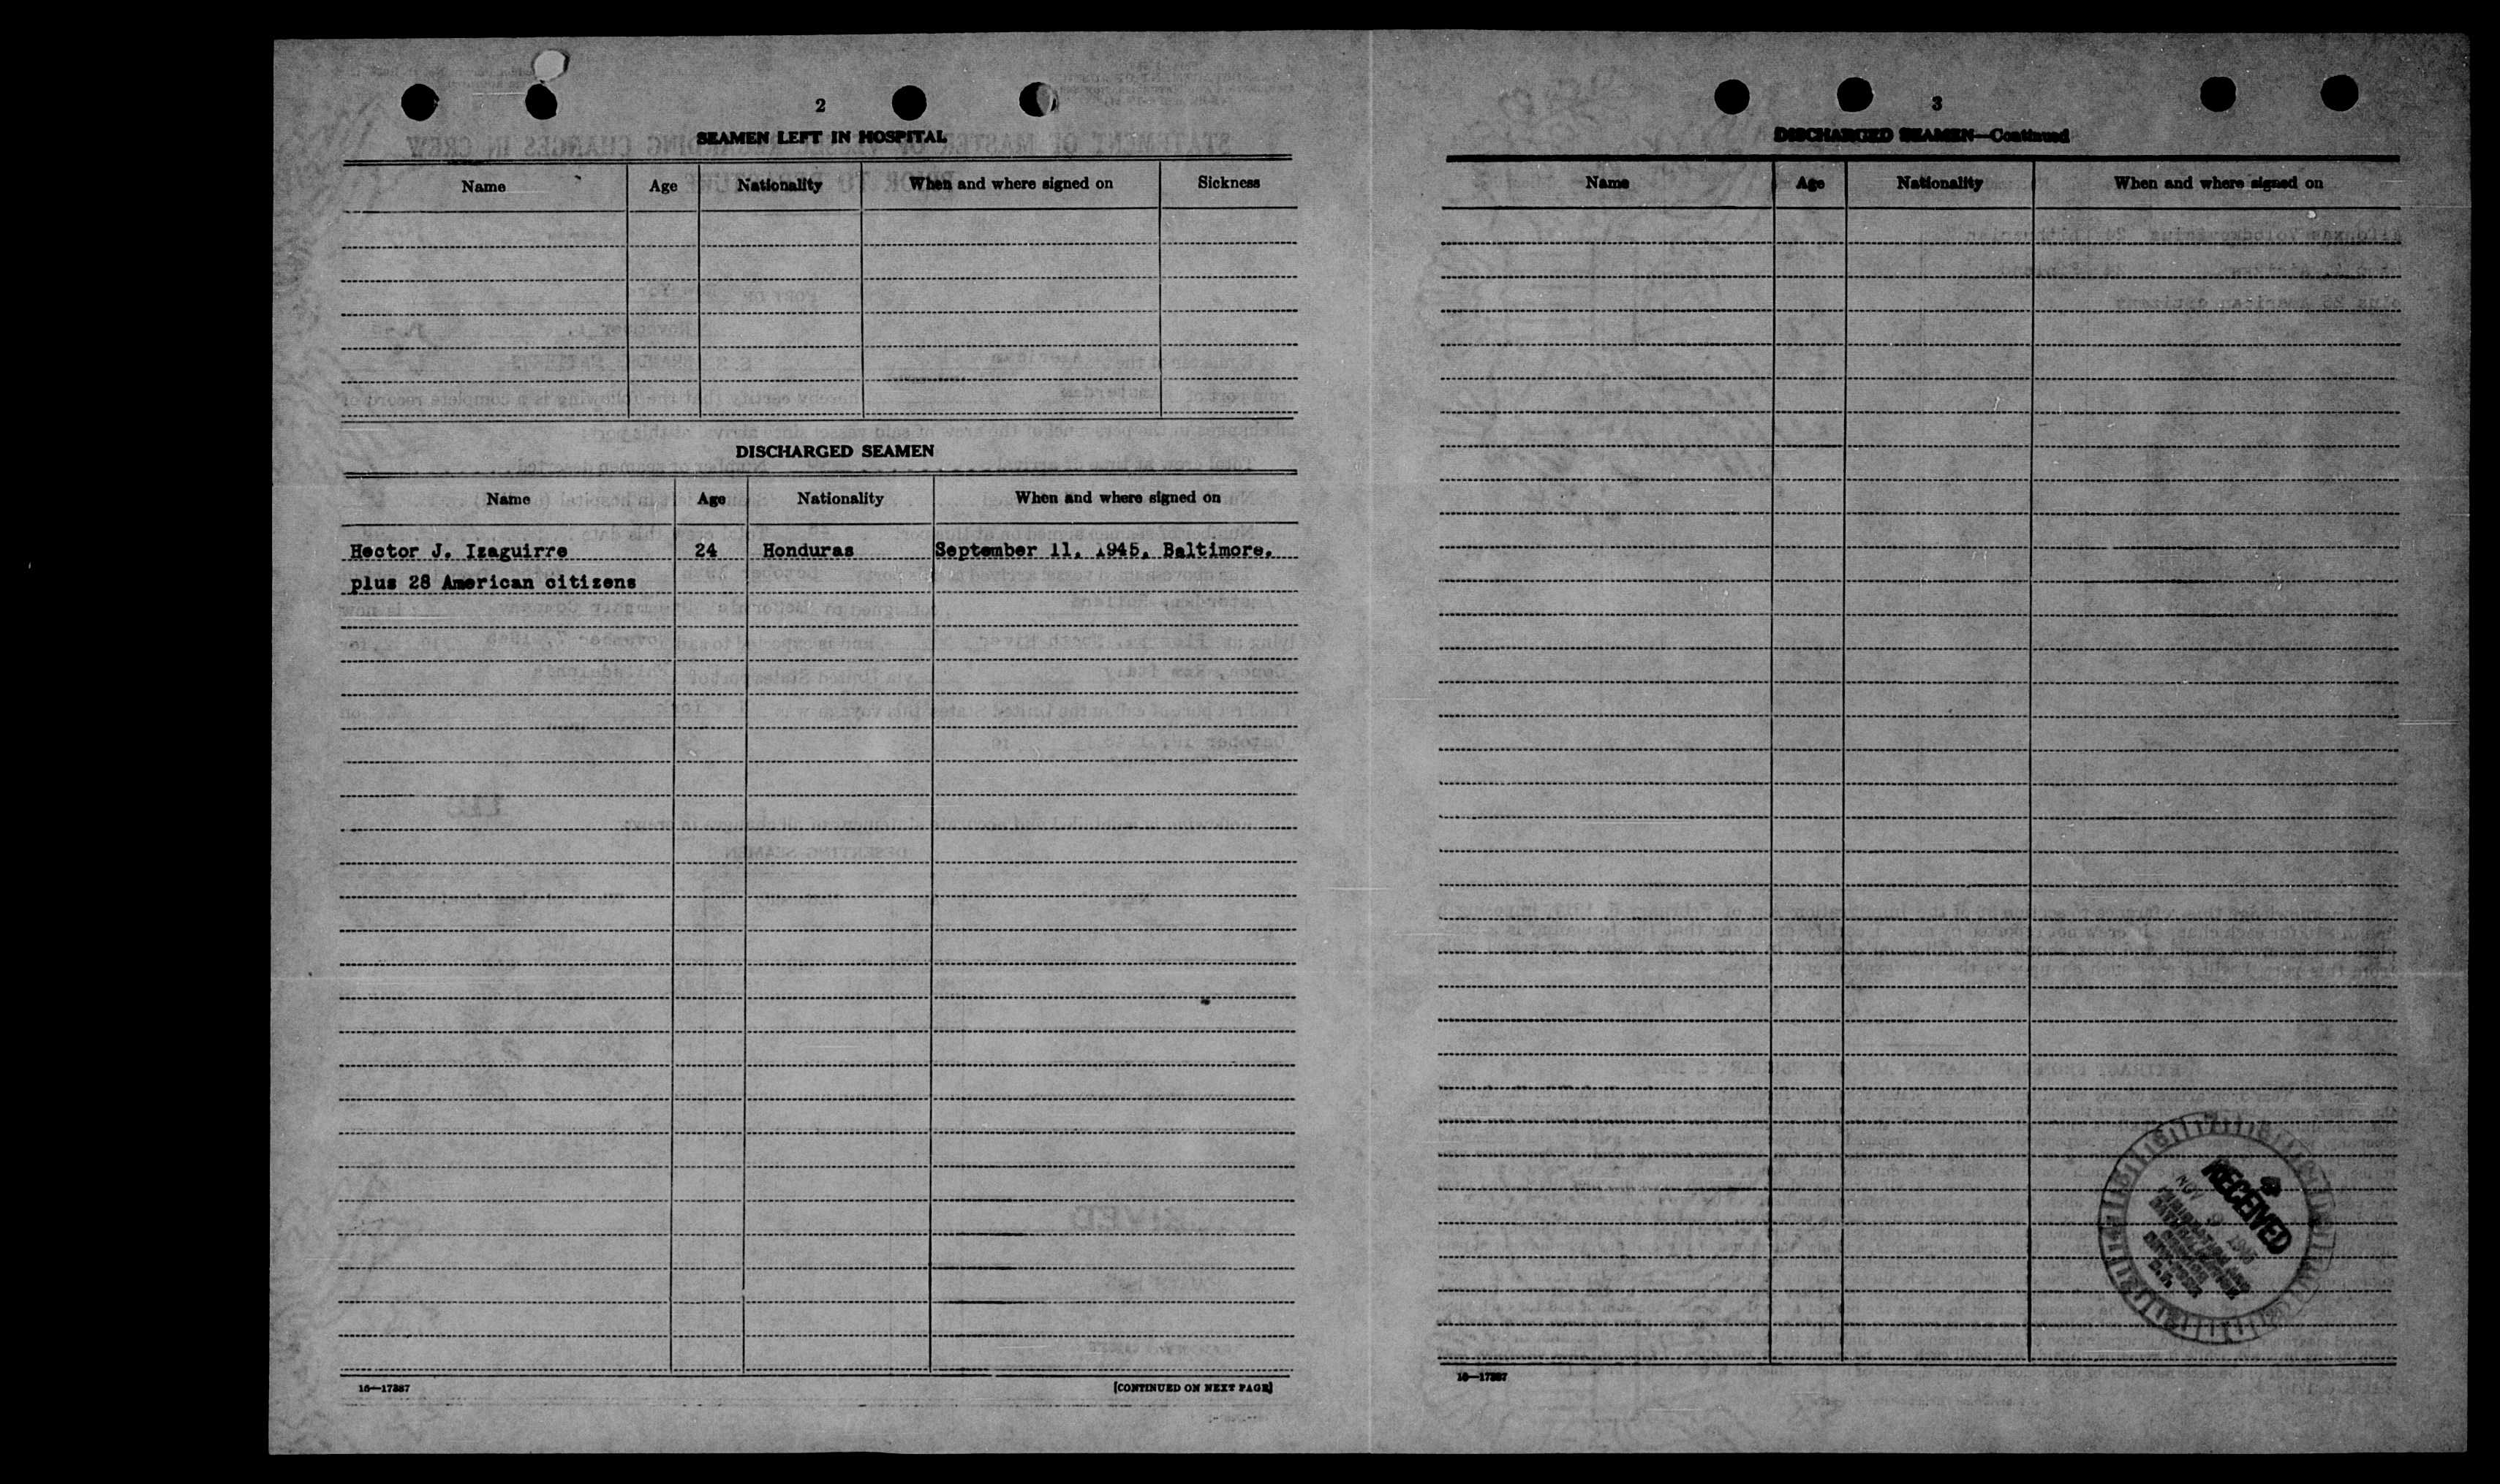 2
SEAMEN LEFT IN HOSPITAL
Name Age Nationality When and where signed on Sickness
DISCHARGED SEAMEN
Name Age Nationality When and where signed on
Hector J. Izaguirre 24 Honduras September 11, 1945, Baltimore,
plus 28 American citizens
16—17387
[CONTINUED ON NEXT PAGE]
3
DISCHARGED SEAMEN—Continued
Name Age Nationality When and where signed on
4
RECEIVED
NOV 9 1945
IMMIGRATION AND
NATURALIZATION
SERVICE
16—17387